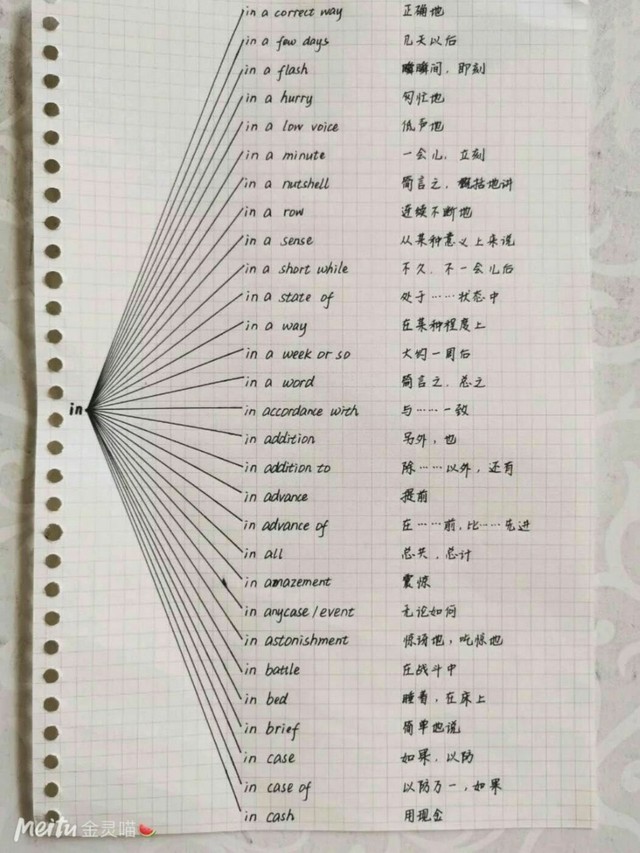 in a correct way 正确地
in a few days 几天以后
in a flash 瞬间，即刻
in a hurry 匆忙地
in a low voice 低声地
in a minute 一会儿，立刻
in a nutshell 简言之，概括地讲
in a row 连续不断地
in a sense 从某种意义上来说
in a short while 不久，不一会儿后
in a state of 处于……状态中
in a way 在某种程度上
in a week or so 大约一周后
in a word 简言之，总之
in
in accordance with 与……一致
in addition 另外，也
in addition to 除……以外，还有
in advance 提前
in advance of 在……前，比……先进
in all 总共，总计
in amazement 震惊
in anycase/event 无论如何
in astonishment 惊讶地，吃惊地
in battle 在战斗中
in bed 睡着，在床上
in brief 简单地说
in case 如果，以防
in case of 以防万一，如果
in cash 用现金
Meitu 金灵喵